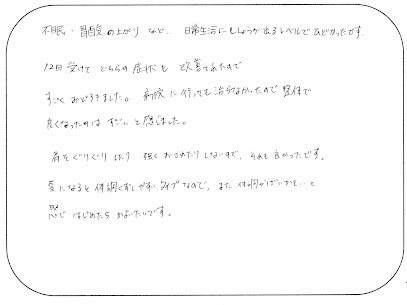 不眠・胃酸の上がり など、日常生活にしょうが出るレベルでひどかったです。
12回 受けて どちらの症状も 改善されたので
すごく おどろきました。 病院に行っても治らなかったので 整体で
良くなったのは すごい と感じました。
首をぐりぐりしたり 強く おさめたり しないので、それも良かったです。
気になると体調くずしやすいタイプなので、また 体調がわるいかも…と
感じ はじめたら かよいたいです。